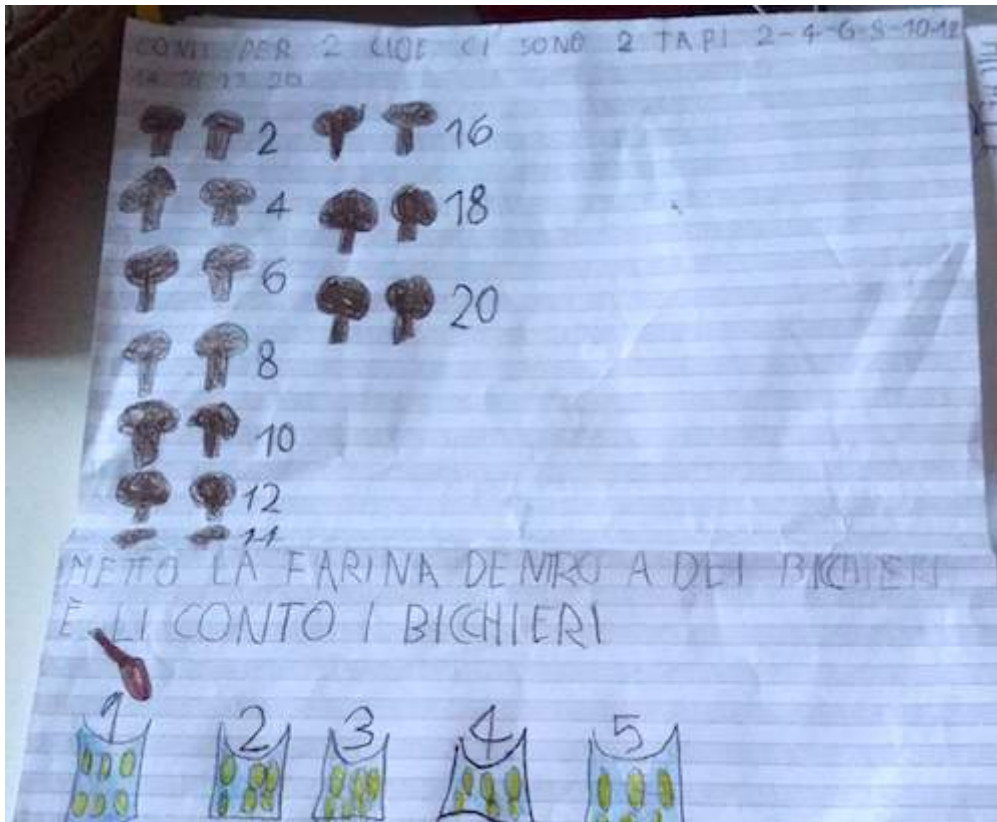 CONTI PER 2 CIOÈ CI SONO 2 TAPI 2-4-6-8-10-12
20
2 16
4 18
6 20
8
10
12
METTO LA FARINA DENTRO A DEI BICCHIERI
E LI CONTO I BICCHIERI
1 2 3 4 5